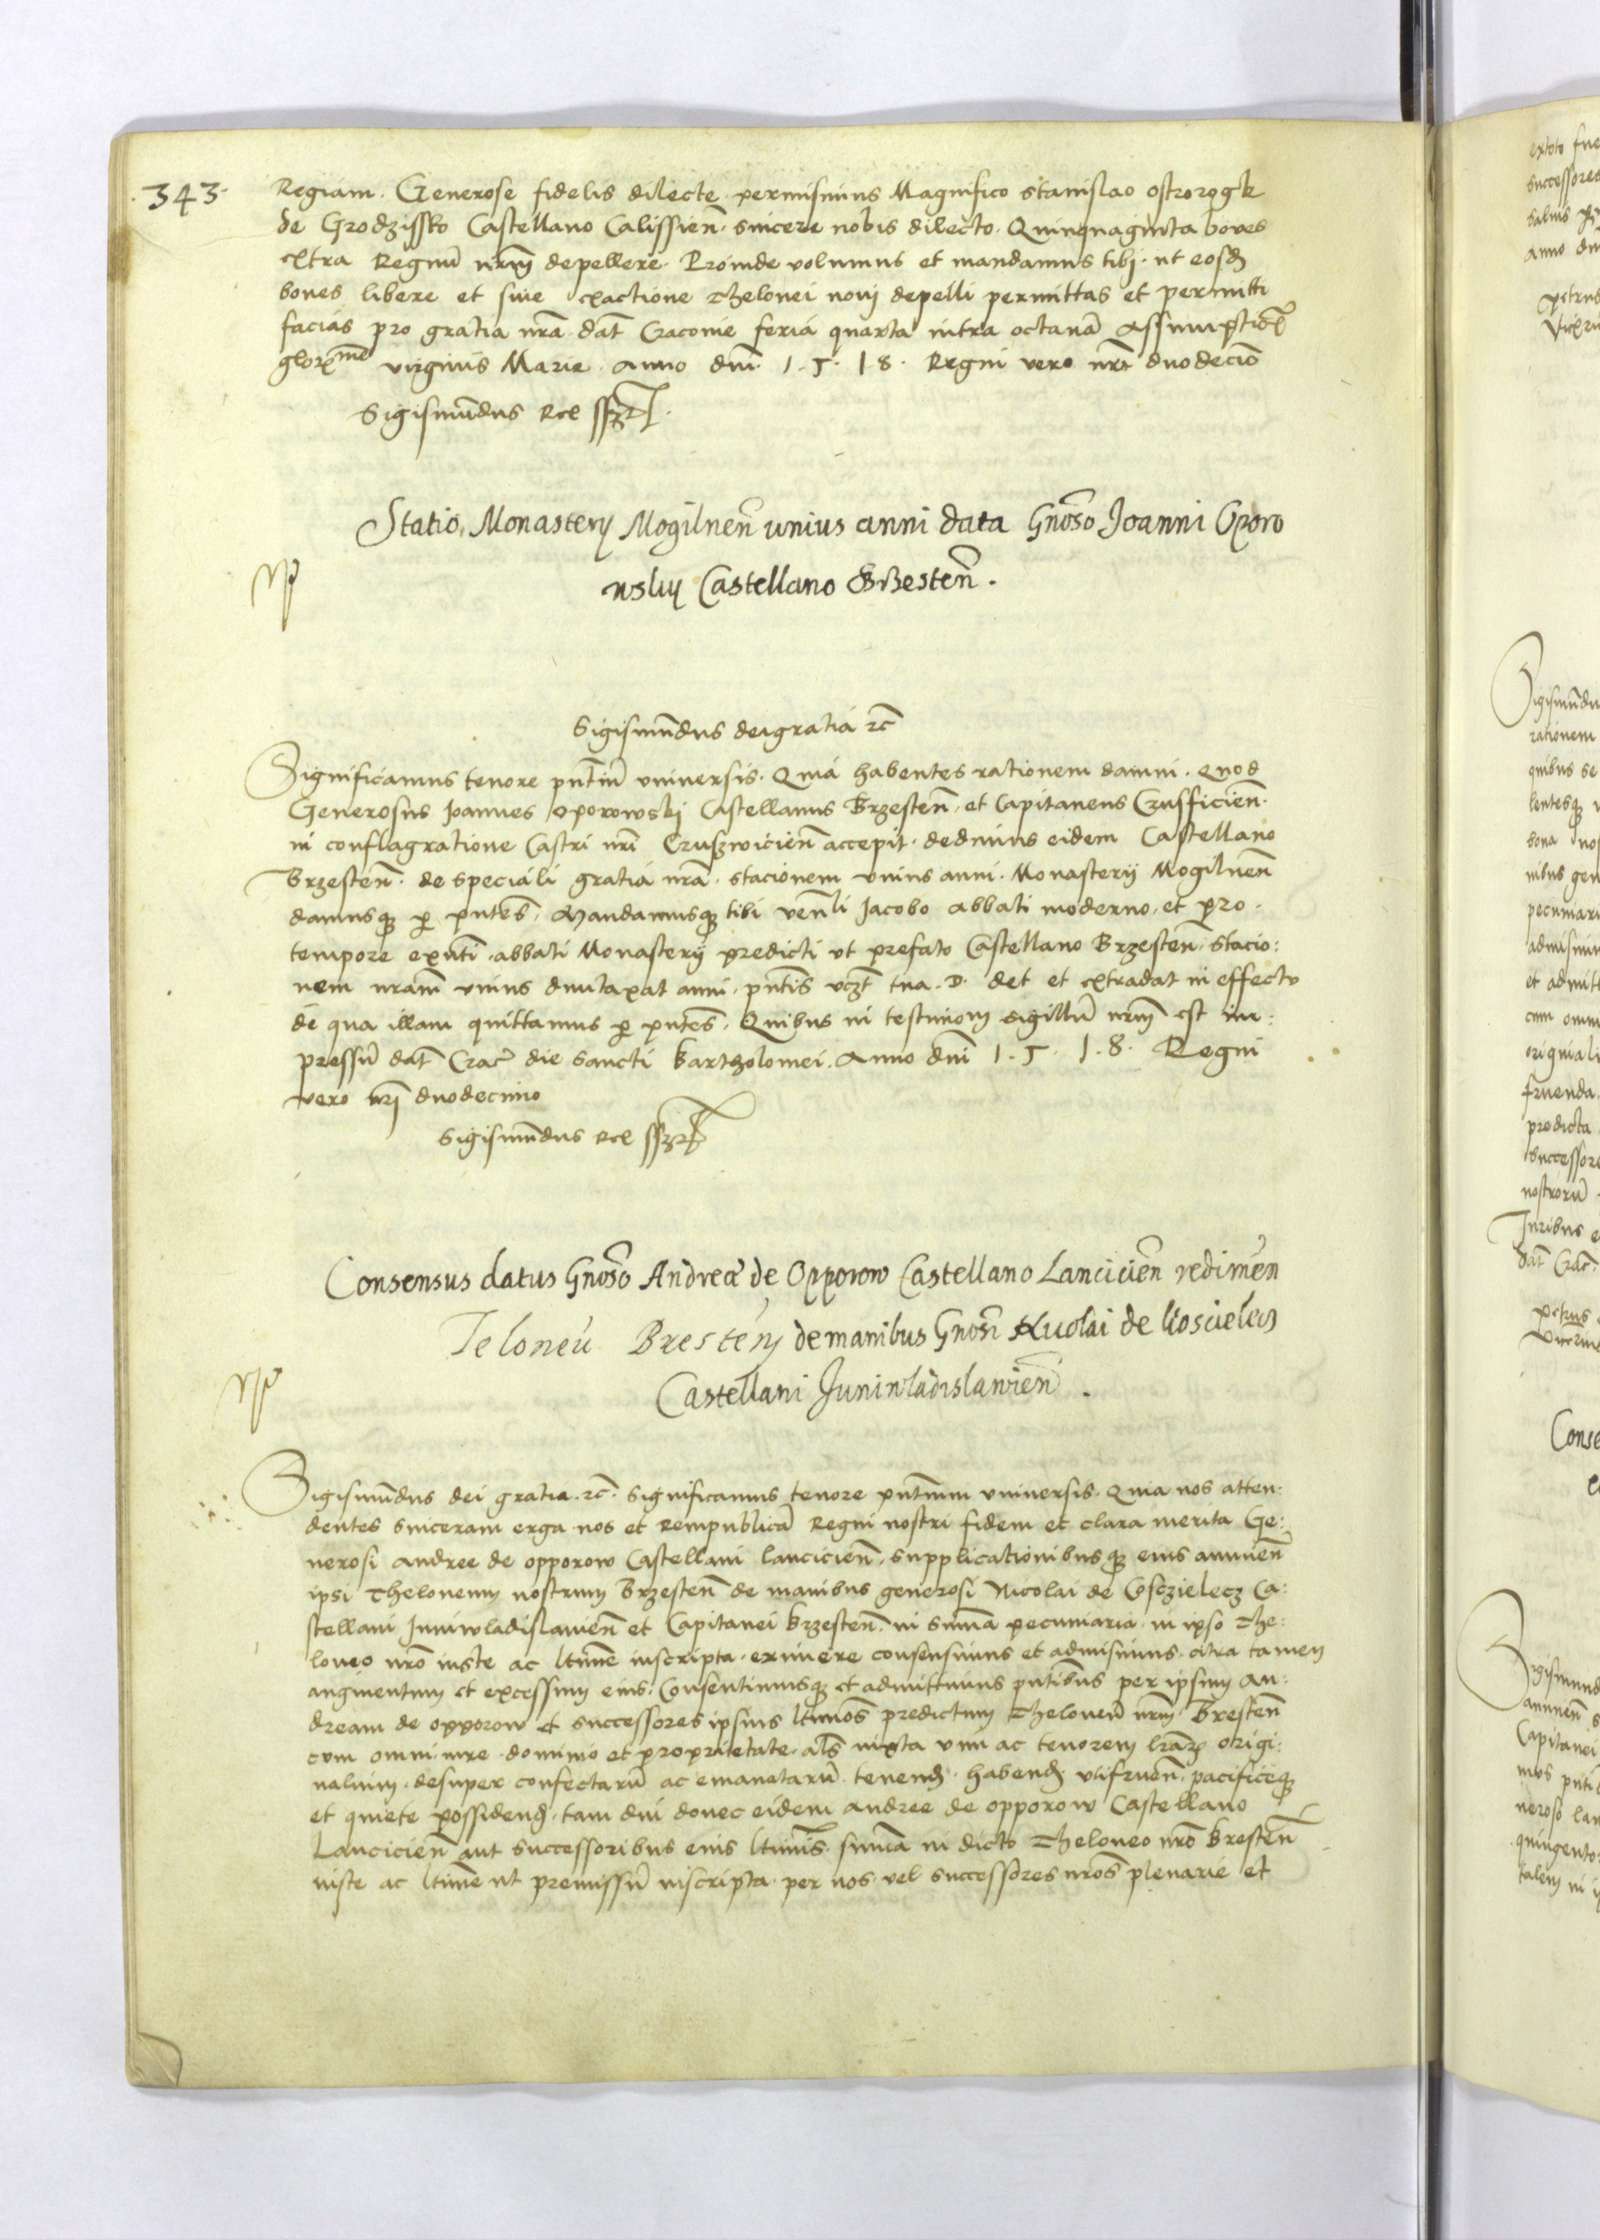 343
Regiam. Generose fidelis dilecte permisimus Magnifico Stanislao Ostrorogk
de Grodzissko Castellano Calissien̄. sincere nobis dilecto. Quinquaginta boves
extra Regnū nr̄m depellere. Proinde volumus et mandamus tibj. ut eosd̄
boves libere et sine exactione Thelonei novj depelli permittas et permitti
facias pro gratia nr̄a. dat̄ Cracovie feria quarta intra octavā Assumptiōis
gloriᵐᵉ virginis Marie. Anno dnī. 1.5.18. Regni vero nr̄i duodecīo
Sigismūdus Rex sszt
Statio Monasterij Mogilnen̄ unius anni data Gnōso Joanni Oporo
wskij Castellano Brestēn.
Sigismūdus dei gratia rc̄
Significamus tenore pn̄tiū universis. Quia habentes rationem damni. quod
Generosus Joannes Oporowskj Castellanus Brzesten̄. et Capitaneus Crusficien̄.
in conflagratione Castri nr̄i Cruszwicien̄ accepit. dedimus eidem Castellano
Brzesten̄. de speciali gratia nr̄a. stacionem unius anni. Monasterij Mogilnen̄
damusq̨ p̱ pn̄tes. Mandamusq̨ tibi ven̄li Jacobo abbati moderno. et pro.
tempore exn̄ti. abbati Monasterij predicti ut prefato Castellano Brzesten̄. stacio:
nem nr̄am unius dumtaxat anni. pn̄tis vcz̄t tua. D. det et extradat in effectu
de qua illam quittamus p̱ pn̄tes. Quibus in testimoniū sigillū nr̄m est im:
pressū dat̄ Crac̄ die sancti Bartholomei. Anno dn̄i 1.5.1.8. Regni
vero nr̄j duodecimo
Sigismūdus Rex sszt
Consensus datus Gnōso Andreæ de Opporow Castellano Lancicien̄ redimēn
Teloneū Brestēn de manibus Gnōsi Nicolai de Koscielecz
Castellani Juniwladislavien̄.
Sigismūdus dei gratia. rc̄. Significamus tenore pn̄tium universis. Quia nos atten:
dentes sinceram erga nos et Rempublicā Regni nostri fidem et clara merita Ge:
nerosi Andree de Opporow Castellani Lancicien̄. supplicationibusq̨ eius annuen̄
ipsi Theloneum nostrum Brzesten̄ de manibus generosi Nicolai de Cosczielecz Ca:
stellani Juniwladislavien̄ et Capitanei Brzesten̄. in summa pecuniaria. in ipso The:
loneo nr̄o iuste ac ltīme inscripta. eximere consensimus et admisimus. citra tamen
augmentum et excessum eius. Consentimusq̨ et admittimus pn̄tibus per ipsum An:
dream de Opporow et successores ipsius ltīmos predictum Theloneū nr̄m Bresten̄
cum omni iure. dominio et proprietate. al̄s iuxta vim ac tenorem lr̄aȝ origi:
nalium. desuper confectarū ac emanatarū. tenend̄. habend̄ utifruen̄. pacificeq̨
et quiete possidend̄. tam diu donec eidem Andree de Opporow Castellano
Lancicien̄ aut successoribus eius ltīmis. sum̄a in dicto Theloneo nr̄o Bresten̄
iuste ac ltīme ut premissū inscripta. per nos vel successores nr̄os plenarie et